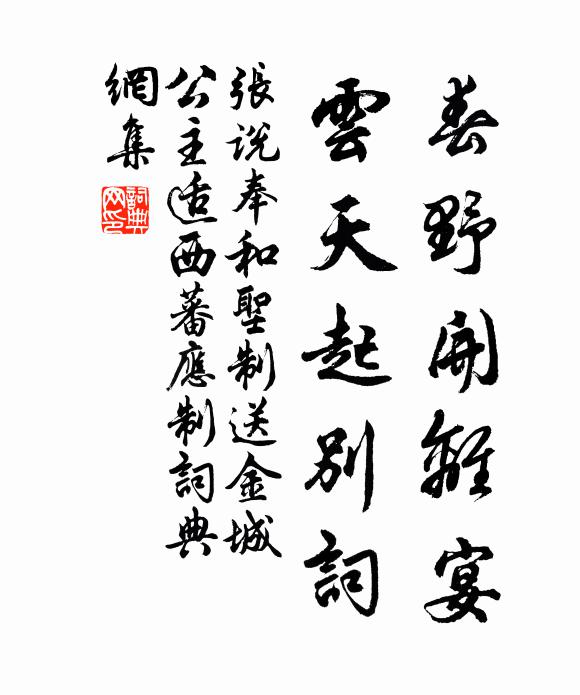 春野開離宴
雲天起別詞
張說奉和聖制送金城
公主适西蕃應制詞典
網集
詞典
网印